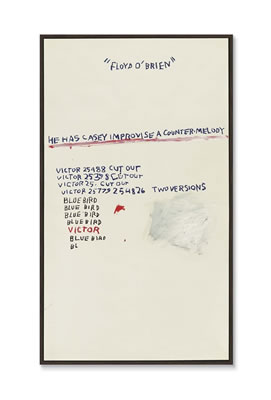 "FLOYD O'BRIEN"
HE HAS CASEY IMPROVISE A COUNTER-MELODY
VICTOR 25488 CUT OUT
VICTOR 25398 CUT OUT
VICTOR 25. CUT OUT
VICTOR 25779 254826 TWO VERSIONS
BLUEBIRD
BLUE BIRD
BLUE BIRD
BLUEBIRD
VICTOR
BLUEBIRD
BL